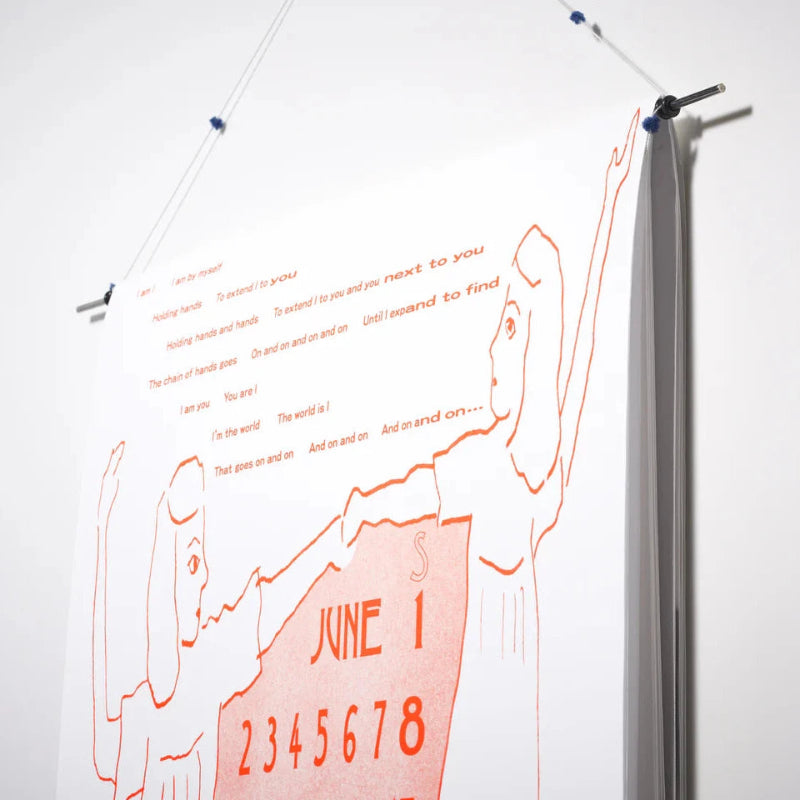 I am I I am by myself
Holding hands To extend I to you
Holding hands and hands To extend I to you and you next to you
The chain of hands goes On and on and on and on Until I expand to find
I am you You are I
I'm the world The world is I
That goes on and on And on and on And on and on...
S
JUNE 1
2 3 4 5 6 7 8